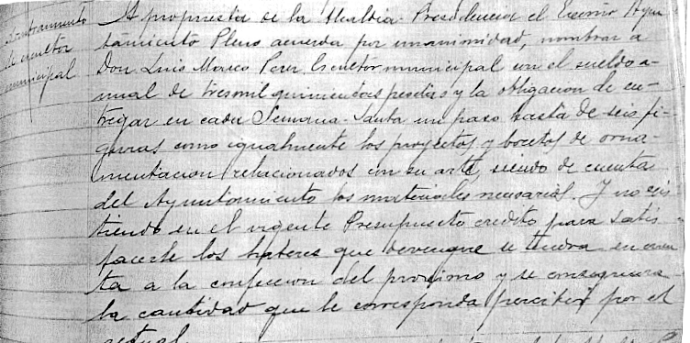 Nombramiento
de escultor
municipal
A propuesta de la Alcaldia-Presidencia el Excmo Ayun
tamiento Pleno acuerda por unanimidad, nombrar a
Don Luis Marco Perez Escultor municipal con el sueldo a-
nual de tresmil quinientas pesetas y la obligacion de en-
tregar en cada Semana-Santa un paso hasta de seis fi-
guras como igualmente los proyectos y bocetos de orna-
mentacion relacionados con su arte, siendo de cuenta
del Ayuntamiento los materiales necesarios. Y no exis
tiendo en el vigente Presupuesto credito para satis
facerle los haberes que devengue se tendra en cuen
ta a la confeccion del proximo y se consignara
la cantidad que le corresponda percibir por el
actual.